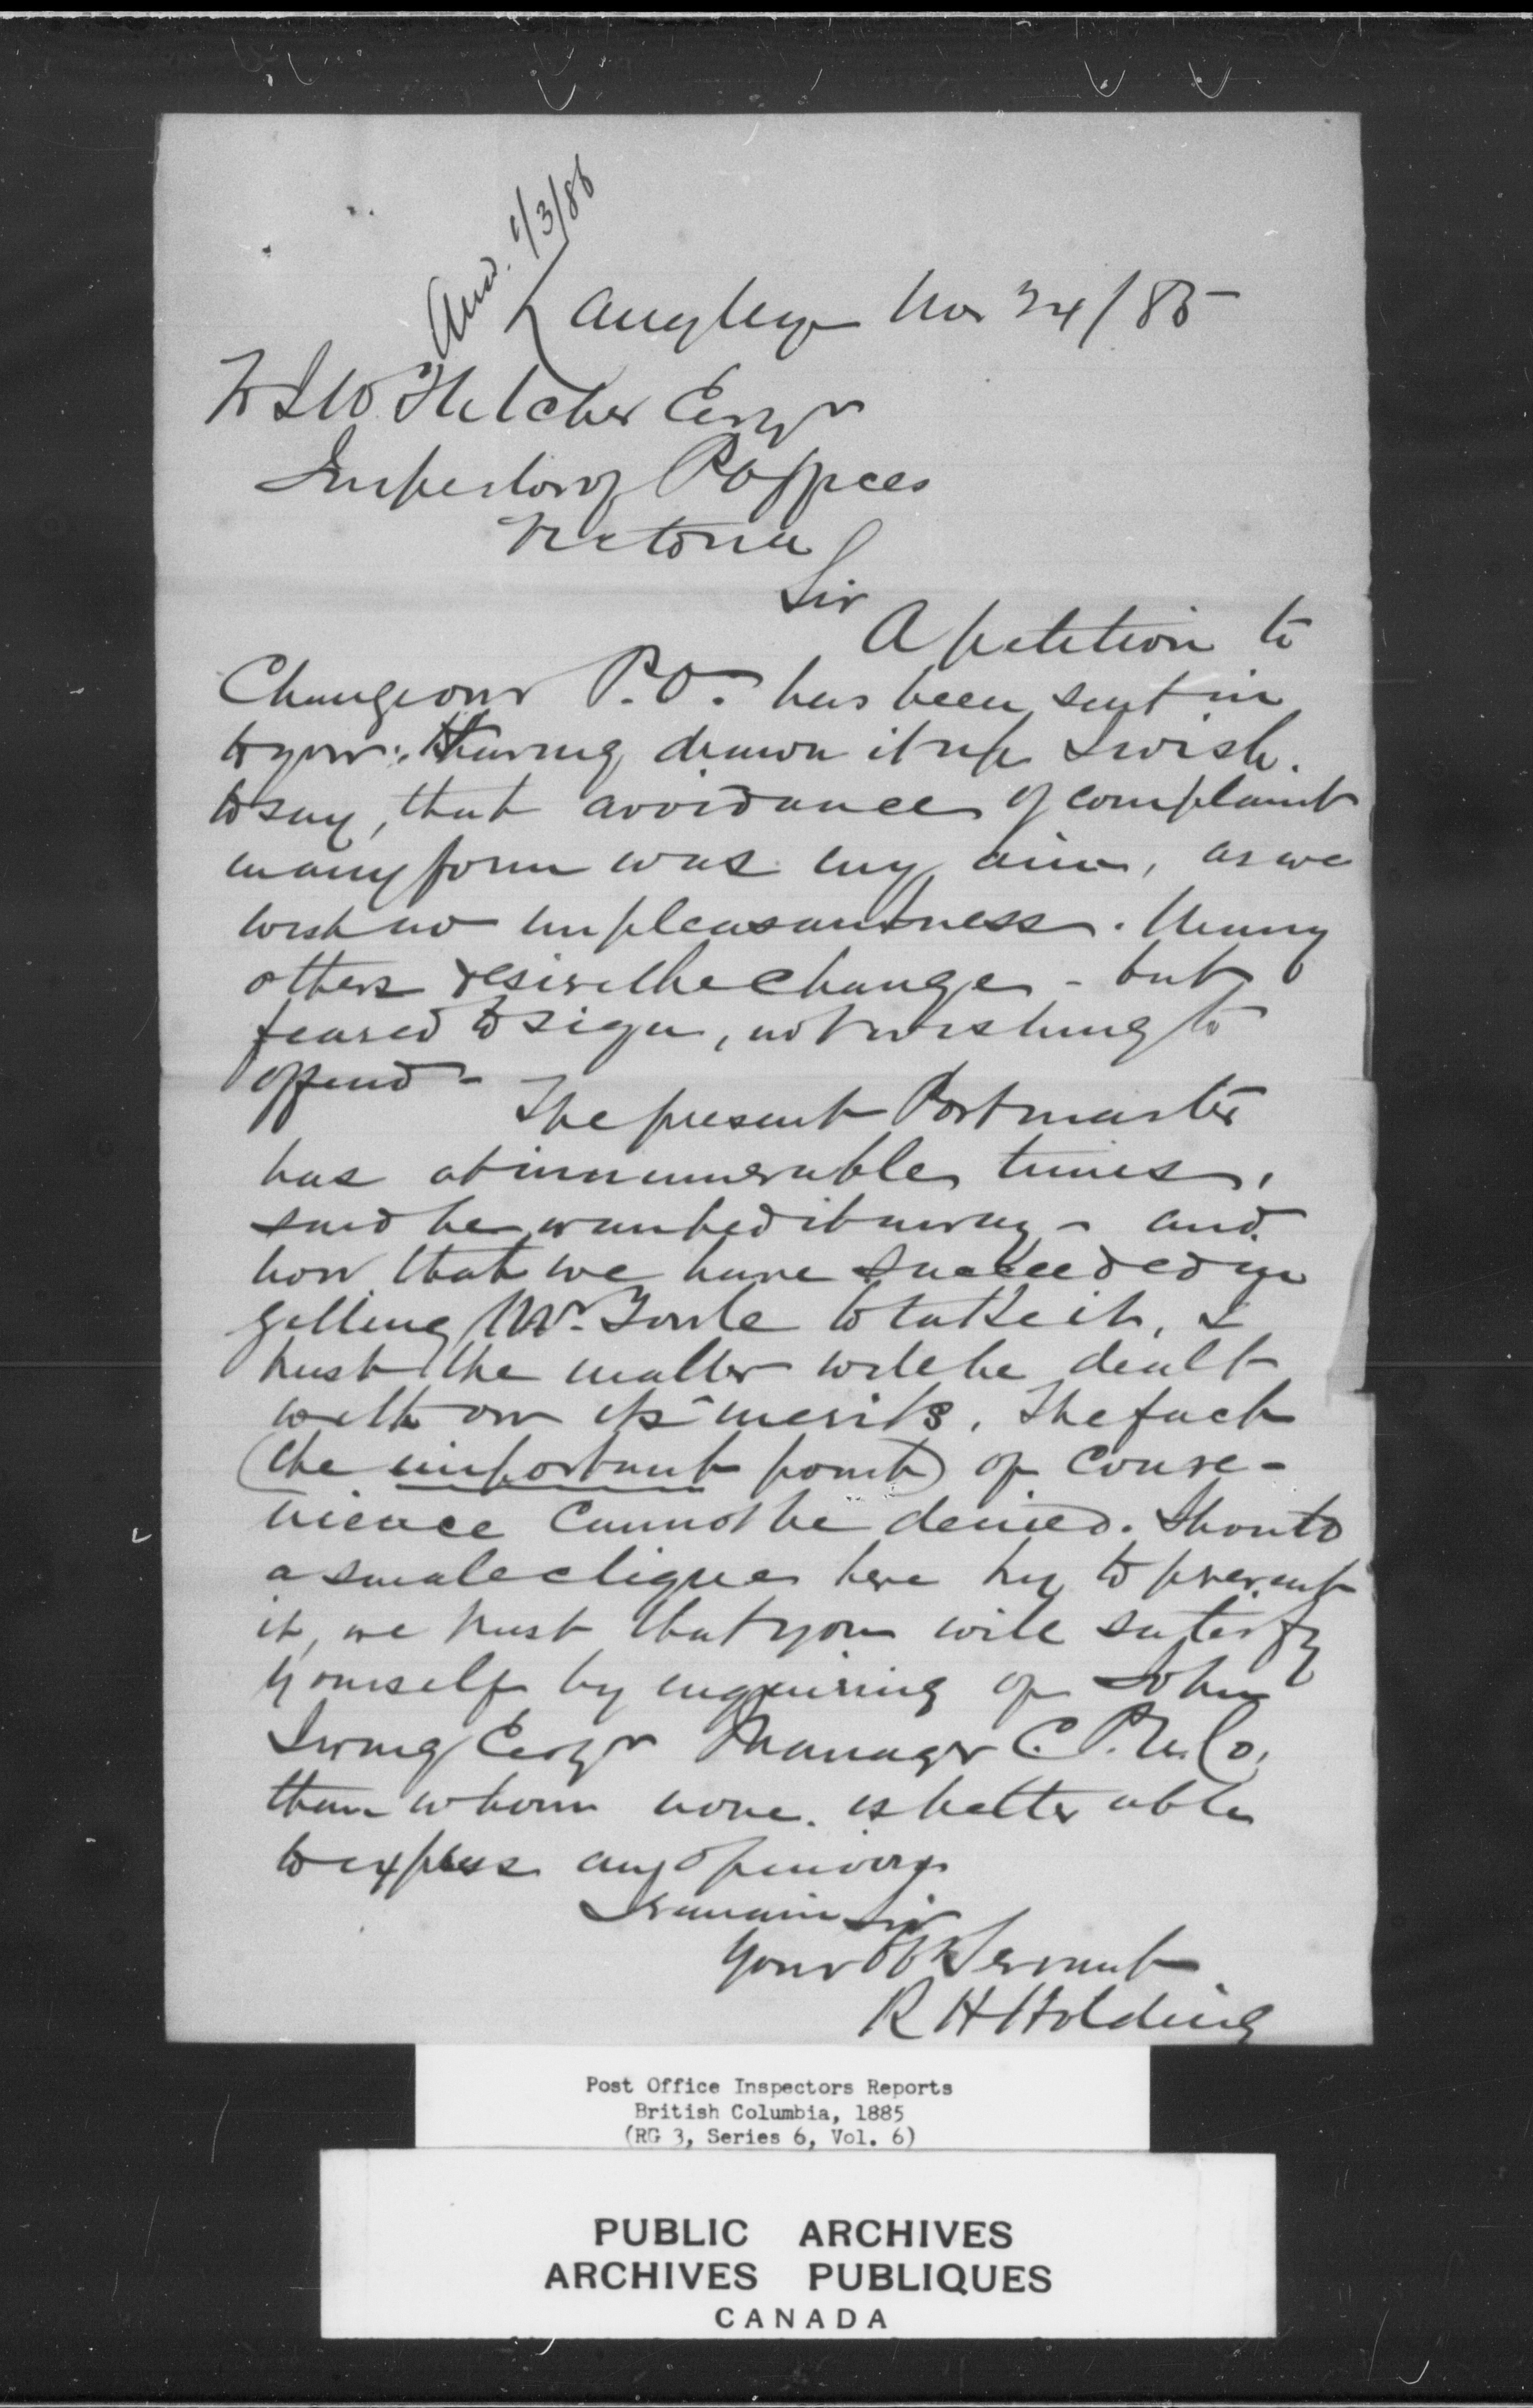 Ans. 1/3/86
Langley Nov 24/85
To
Fletcher Esqr
Inspector of P Offices
Victoria
Sir
A petition to
Change our P.O. has been sent in
to you. Having drawn it up I wish
to say, that avoidance of complaint
in any form was my aim, as we
wish no unpleasantness. Many
others desire the change - but
feared to sign, not wishing to
offend -
The present Postmaster
has at innumerable times,
said he wanted it away - and
now that we have succeeded in
getting Mr. Towle to take it, I
trust the matter will be dealt
with on its merits. The fact
(the important point) of conve-
nience cannot be denied. Should
a small clique here try to prevent
it, we trust that you will satisfy
yourself by enquiring of John
Irving Esqr Manager C.P.N. Co,
than whom none is better able
to express any opinion
I remain Sir
Your Ob Servant
R H Holding
Post Office Inspectors Reports
British Columbia, 1885
(RG 3, Series 6, Vol. 6)
PUBLIC ARCHIVES
ARCHIVES PUBLIQUES
CANADA